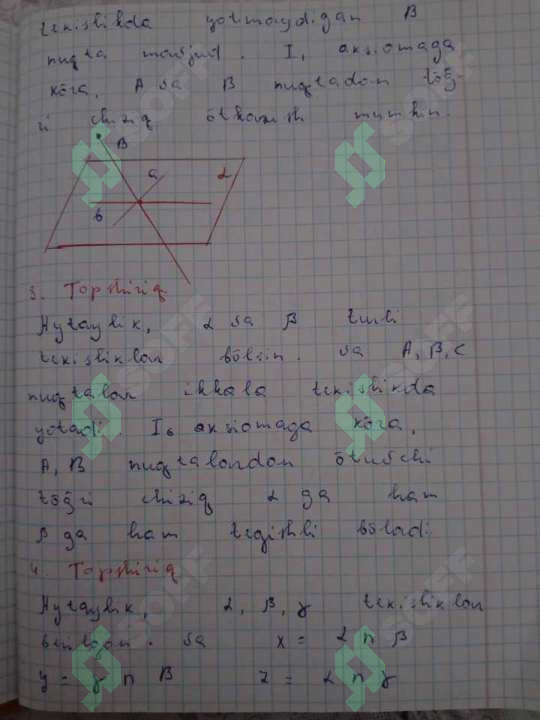 tekislikda yotmaydigan B
nuqta mavjud. I₁ aksiomaga
köra, A va B nuqtadan tög̃
ri chiziq ötkazish mumkin.
B
a
α
b
3. Topshiriq
Aytaylik, α va β turli
tekisliklar bölsin. va A, B, C
nuqtalar ikkala tekislikda
yotadi I₆ aksiomaga köra,
A, B nuqtalardan ötuvchi
tög̃ri chiziq α ga ham
β ga ham tegishli böladi
4. Topshiriq
Aytaylik, α, β, γ tekisliklar
berilgan. va x = α ∩ β
y = γ ∩ β z = α ∩ γ
SOFF
SOFF
SOFF
SOFF
SOFF
SOFF
SOFF
SOFF